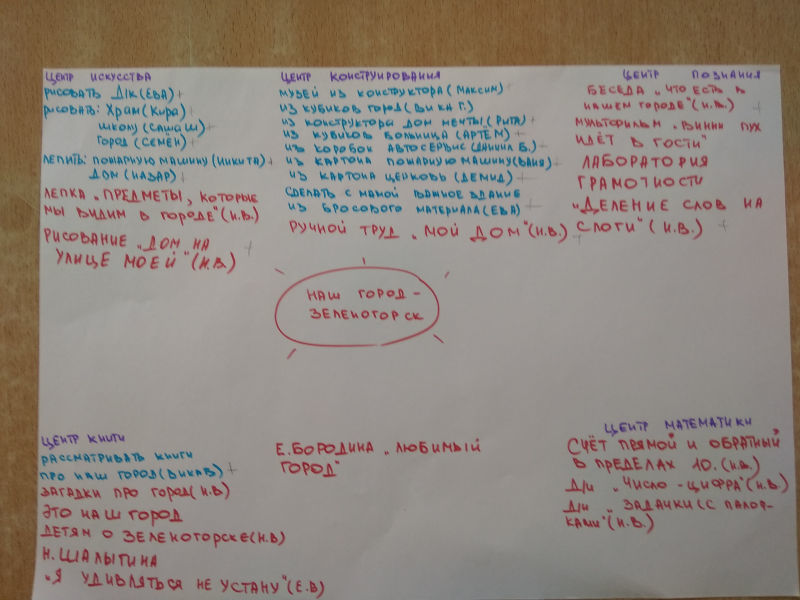 ЦЕНТР ИСКУССТВА
РИСОВАТЬ ДiК(ЕВА) +
РИСОВАТЬ: ХРАМ(КИРА) +
ШКОЛУ (САША Ш) +
ГОРОД (СЕМЁН) +
ЛЕПИТЬ: ПОЖАРНУЮ МАШИНУ (НИКИТА) +
ДОМ (НАЗАР) +
ЛЕПКА „ПРЕДМЕТЫ, КОТОРЫЕ
МЫ ВИДИМ В ГОРОДЕ"(Н.В.)
РИСОВАНИЕ „ДОМ НА +
УЛИЦЕ МОЕЙ"(Н.В)
ЦЕНТР КОНСТРУИРОВАНИЯ
МУЗЕЙ ИЗ КОНСТРУКТОРА(МАКСИМ) +
ИЗ КУБИКОВ ГОРОД(ВИКА Г.)
ИЗ КОНСТРУКТОРА ДОМ МЕЧТЫ(РИТА) +
ИЗ КУБИКОВ БОЛЬНИЦА (АРТЁМ) +
ИЗ КОРОБОК АВТОСЕРВИС (ДАНИИЛ Б.) +
ИЗ КАРТОНА ПОЖАРНУЮ МАШИНУ(ВАНЯ) +
ИЗ КАРТОНА ЦЕРКОВЬ (ДЕМИД) +
СДЕЛАТЬ С МАМОЙ ВАЖНОЕ ЗДАНИЕ
ИЗ БРОСОВОГО МАТЕРИАЛА(ЕВА) +
РУЧНОЙ ТРУД „МОЙ ДОМ"(Н.В.) +
ЦЕНТР ПОЗНАНИЯ
БЕСЕДА „ЧТО ЕСТЬ В
НАШЕМ ГОРОДЕ"(Н.В.) +
МУЛЬТФИЛЬМ „ВИННИ ПУХ
ИДЁТ В ГОСТИ"
ЛАБОРАТОРИЯ
ГРАМОТНОСТИ
„ДЕЛЕНИЕ СЛОВ НА
СЛОГИ"(Н.В.) +
НАШ ГОРОД -
ЗЕЛЕНОГОРСК
ЦЕНТР КНИГИ
РАССМАТРИВАТЬ КНИГИ
ПРО НАШ ГОРОД(ВИКА В) +
ЗАГАДКИ ПРО ГОРОД(Н.В)
ЭТО НАШ ГОРОД
ДЕТЯМ О ЗЕЛЕНОГОРСКЕ(Н.В)
Н.ШАЛЫГИНА
„Я УДИВЛЯТЬСЯ НЕ УСТАНУ"(Е.В)
Е.БОРОДИНА „ЛЮБИМЫЙ
ГОРОД"
ЦЕНТР МАТЕМАТИКИ
СЧЁТ ПРЯМОЙ И ОБРАТНЫЙ
В ПРЕДЕЛАХ 10.(Н.В.)
Д/И „ЧИСЛО - ЦИФРА"(Н.В.)
Д/И „ЗАДАЧКИ(С ПАЛОЧ-
КАМИ"(Н.В.)